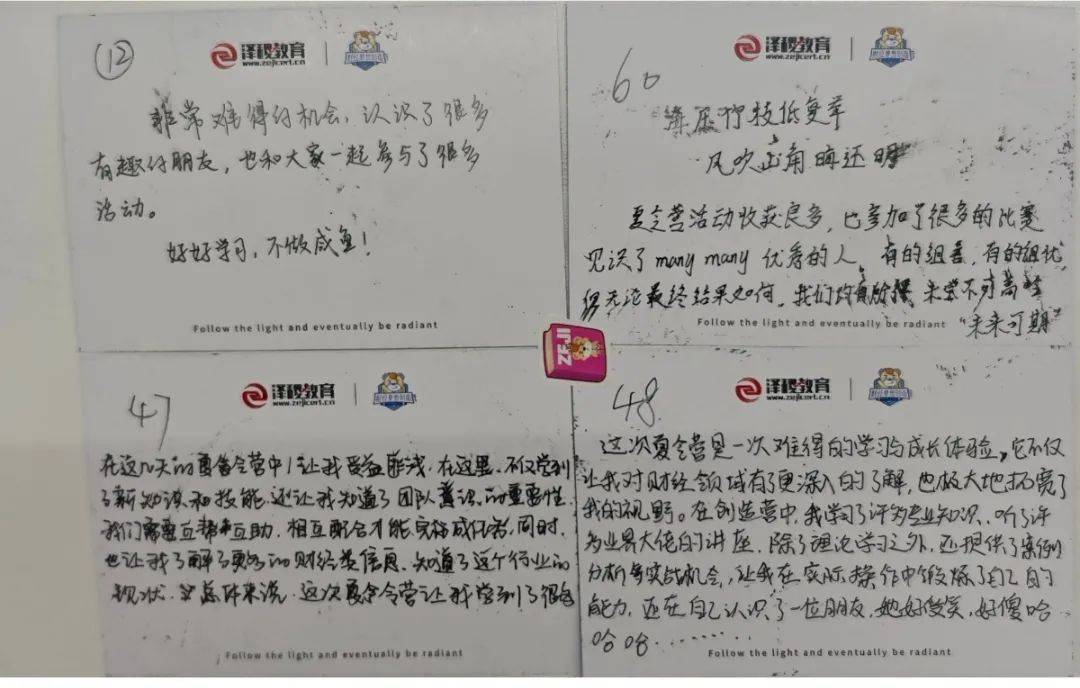 ⑫
泽稷教育
www.zejicert.cn
非常难得的机会，认识了很多
有趣的朋友，也和大家一起参与了很多
活动。
好好学习，不做咸鱼！
Follow the light and eventually be radiant
60
泽稷教育
www.zejicert.cn
叶压柯枝低复举
风吹云角晦还明
夏令营活动收获良多，也参加了很多的比赛
见识了 many many 优秀的人，有的组善，有的组优
无论最终结果如何，我们均
Follow the light and eventually be radiant
“未来可期”
ZEJI
47
泽稷教育
www.zejicert.cn
在这几天的夏令营中，让我受益匪浅，在这里，不仅学到
了新知识和技能，还让我知道了团队意识的重要性，
我们需要互帮互助，相互配合才能完成任务，同时，
也让我了解了更多的财经类信息，知道了这个行业的
现状，总体来说，这次夏令营让我学到了很多
Follow the light and eventually be radiant
48
泽稷教育
www.zejicert.cn
这次夏令营是一次难得的学习与成长体验。它不仅
让我对财经领域有了更深入的了解，也极大地拓宽了
我的视野。在创造营中，我学习了许多专业知识，听了许
多业界大佬的讲座，除了理论学习之外，还提供了案例
分析等实战机会，让我在实际操作中锻炼了自己的
能力，还在自己认识了一位朋友，她好傻笑，好傻哈
哈哈………
Follow the light and eventually be radiant